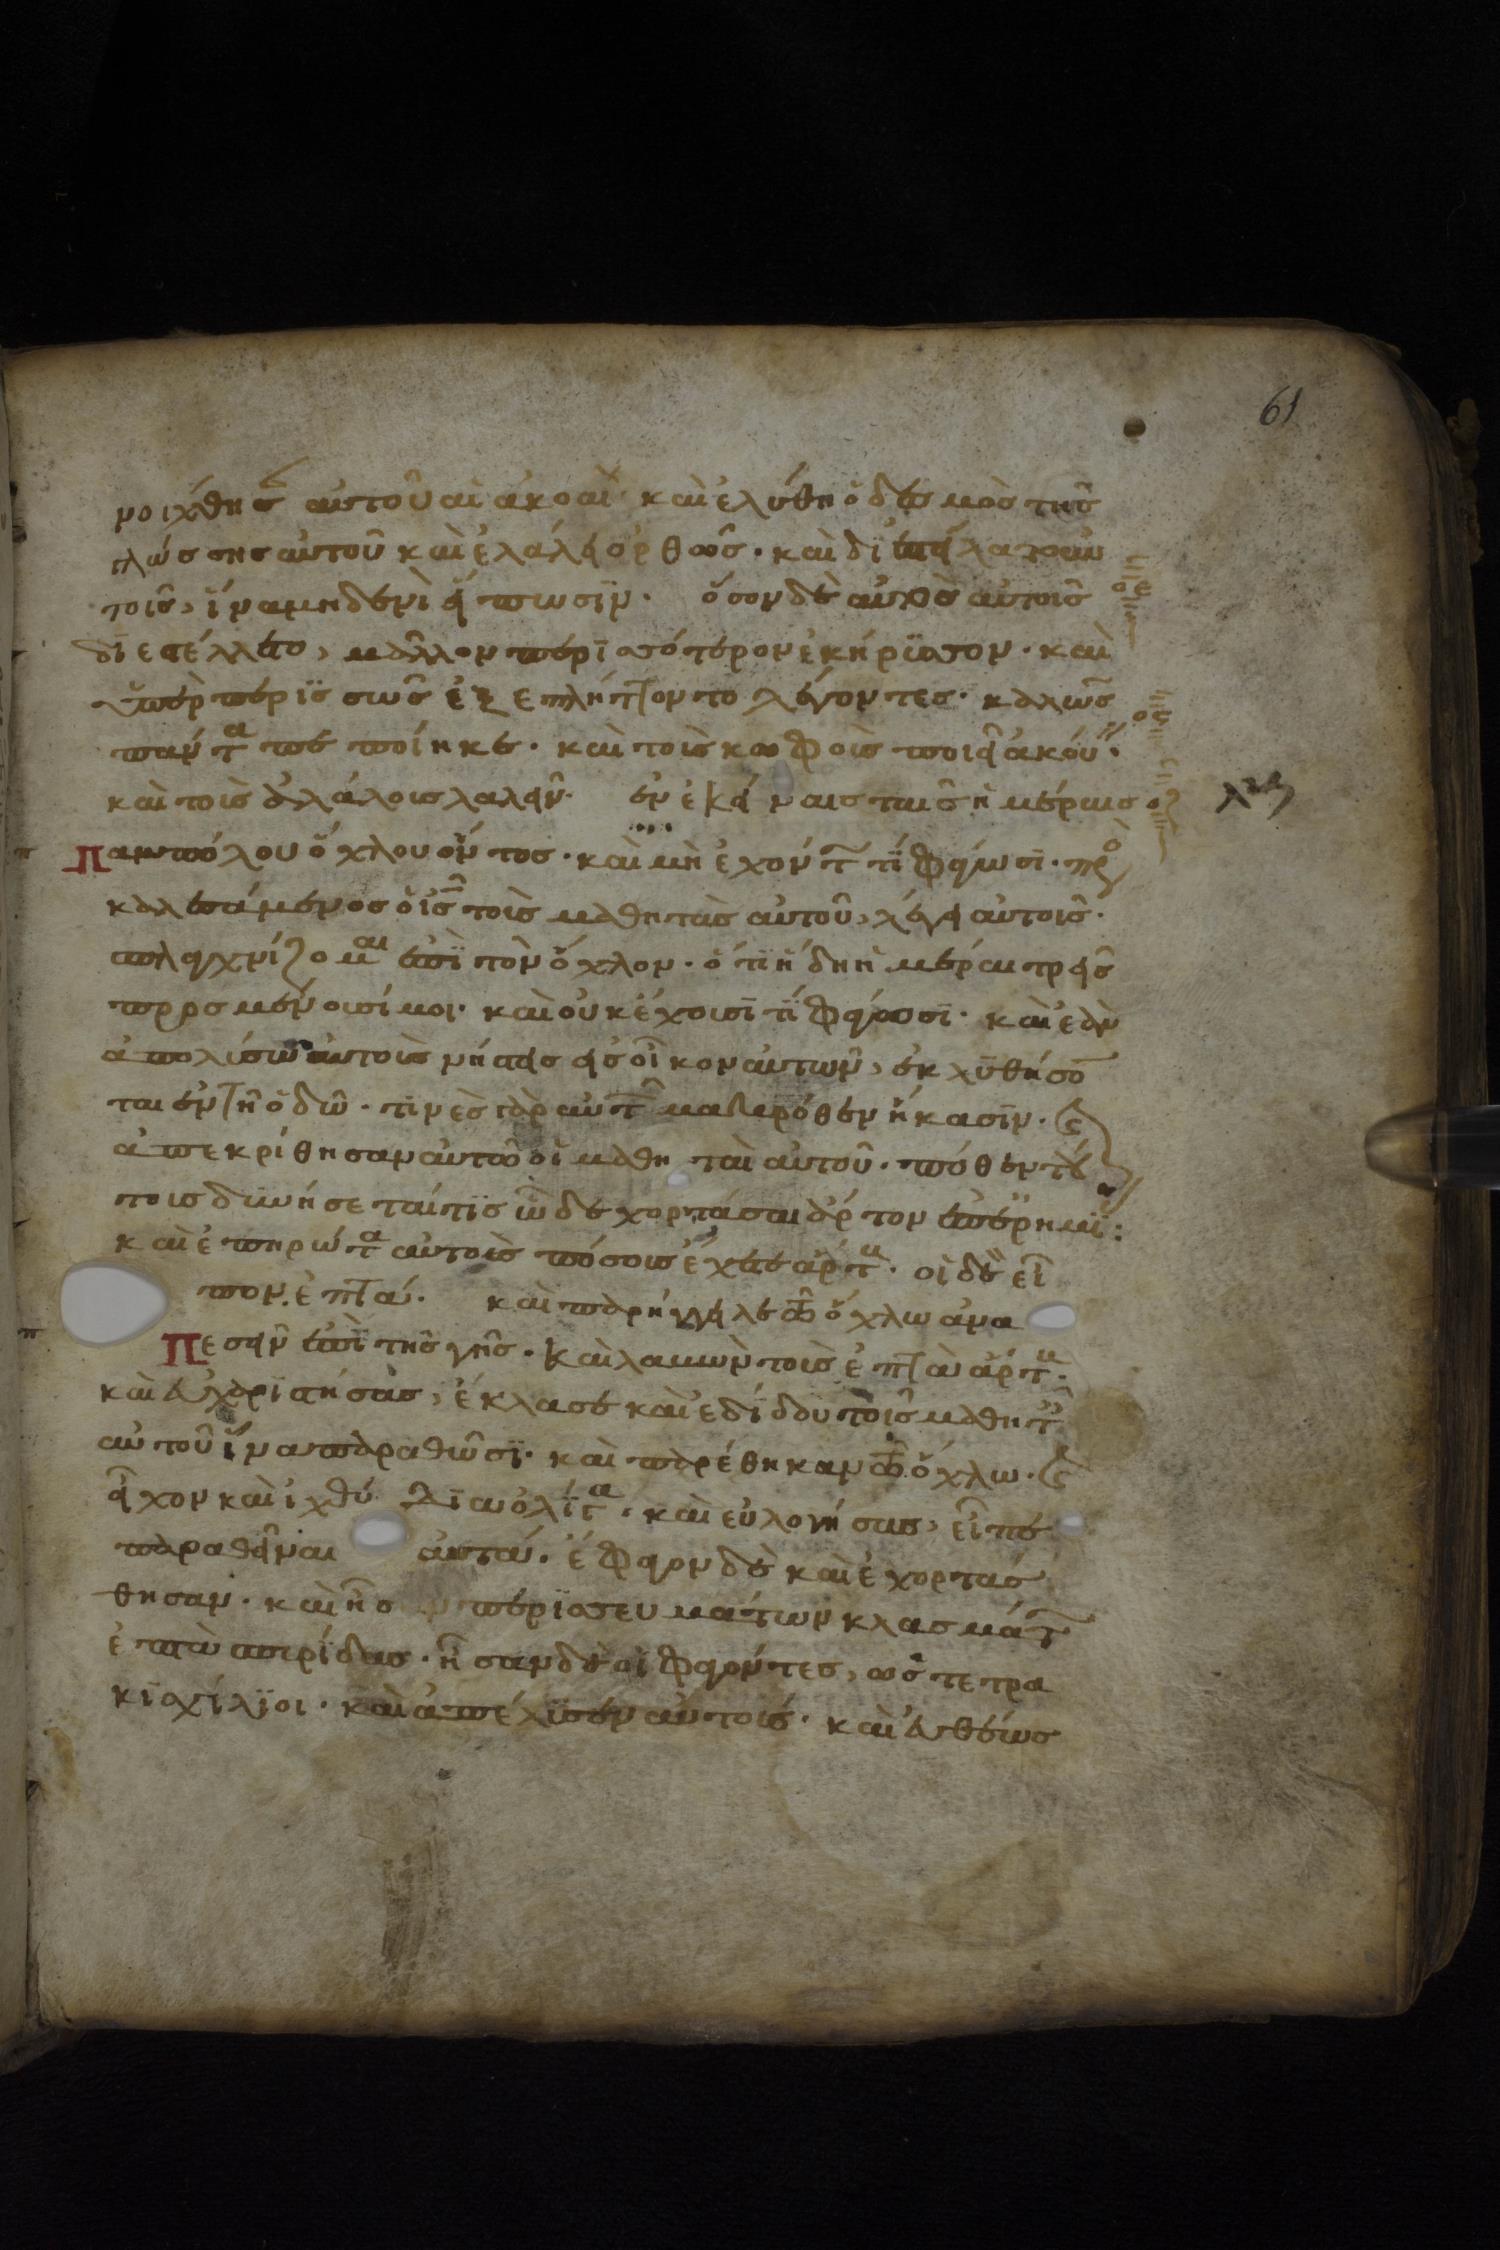 61
νοιχθησ αυτοῦ αἱ ἀκοαὶ· καὶ ἐλύθη ὁ δεσμὸς τῆς
γλώσσης αὐτοῦ καὶ ἐλάλει ὀρθῶς· καὶ διεστείλατο αὐ
τοῖς, ἵνα μηδενὶ εἴπωσϊν· ὅσον δὲ αὐτὸς αὐτοῖς
διεστέλλετο, μᾶλλον περϊσσότερον ἐκήρϋσσον· καὶ
ὑπερπερϊσσῶς ἐξεπλήττοντο λέγοντες· καλῶς
πάντα πεποίηκε· καὶ τοὺς κωφοὺς ποιεῖ ἀκούειν·
καὶ τοὺς ἀλάλους λαλεῖν· ἐν ἐκείναις ταῖς ἡμέραις
Παμπόλου ὄχλου ὄντος· καὶ μὴ ἐχόντ τί φάγωσϊ· προ
καλεσάμενος ὁ ισ τοὺς μαθητὰς αὐτοῦ, λέγει αὐτοῖς·
σπλαγχνίζομαι ἐπὶ τὸν ὄχλον· ὅτι ἤδη ἡμέραι τρεῖς
προσμένουσί μοι· καὶ οὐκ ἔχουσϊ τί φάγωσϊ· καὶ ἐὰν
ἀπολύσω αὐτοὺς νήστεις εἰς οἶκον αὐτῶν, ἐκλϋθήσον
ται ἐν τῆ ὁδῶ· τϊνὲς γὰρ αὐτ μακρόθεν ἥκασϊν· (ϛ)
ἀπεκρίθησαν αὐτῶ οἱ μαθηταὶ αὐτοῦ· πόθεν τού
τους δϋνήσεταί τϊς ὧδε χορτάσαι ἄρτον ἐπ ἐρημί:
καὶ ἐπηρώτα αὐτοὺς πόσους ἔχετε ἄρτ· οἱ δὲ εἶ
πον, ἑπτά· καὶ παρήγγειλε τῶ ὄχλω ἀνα
Πεσεῖν ἐπὶ τῆς γῆς· καὶ λαβὼν τοὺς ἑπτὰ ἄρτ·
καὶ εὐχαρϊστήσας, ἔκλασε καὶ ἐδίδου τοῖς μαθητ
αὐτοῦ ἵνα παραθῶσϊ· καὶ παρέθηκαν τῶ ὄχλω· (ϛ)
εἶχον καὶ ἰχθύδϊα ὀλίγα· καὶ εὐλογήσας, εἶπε
παραθεῖναι αὐτά· ἔφαγον δὲ καὶ ἐχορτάσ
θησαν· καὶ ἦραν περϊσσευμάτων κλασμάτ
ἑπτὰ σπυρίδας· ἦσαν δὲ οἱ φαγόντες, ὡς τετρα
κϊσχίλϊοι· καὶ ἀπέλϋσεν αὐτούς· καὶ εὐθέως